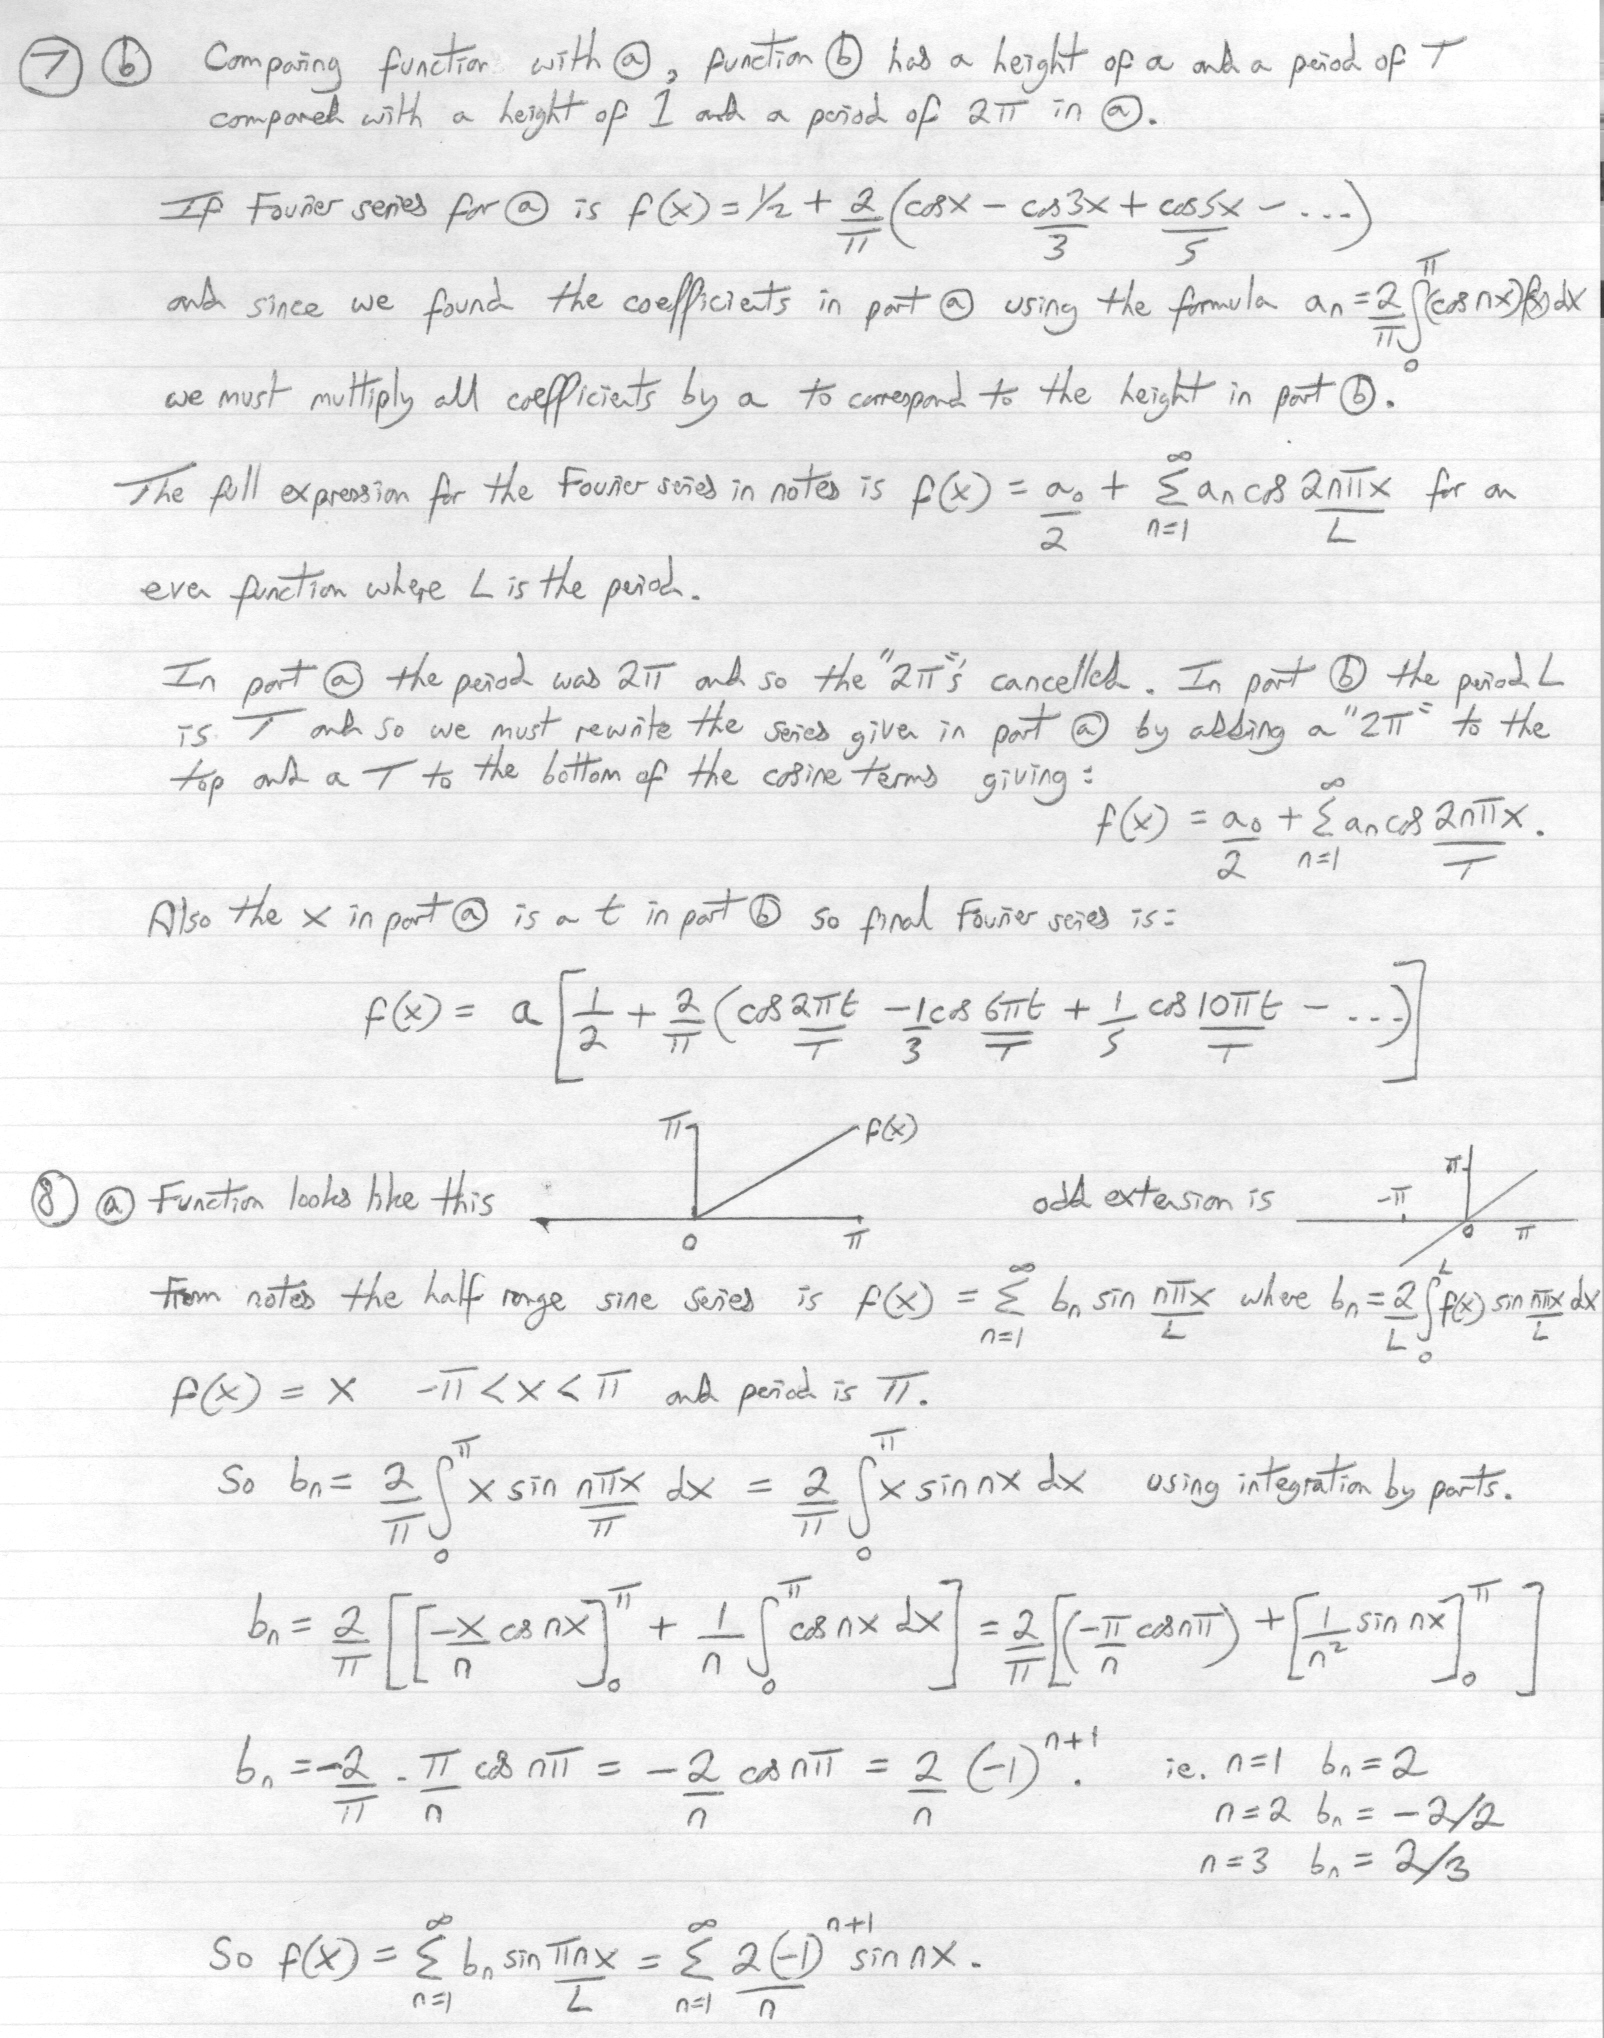 7 b Comparing function with a, function b has a height of a and a period of T
compared with a height of 1 and a period of 2π in a.
If Fourier series for a is f(x) = 1/2 + 2/π (cosx − cos3x/3 + cos5x/5 − ...)
and since we found the coefficients in part a using the formula an = 2/π ∫₀^π (cos nx) f(x) dx
we must multiply all coefficients by a to correspond to the height in part b.
The full expression for the Fourier series in notes is f(x) = a₀/2 + Σ_{n=1}^∞ an cos 2nπx/L for an
even function where L is the period.
In part a the period was 2π and so the "2π"'s cancelled. In part b the period L
is T and so we must rewrite the series given in part a by adding a "2π" to the
top and a T to the bottom of the cosine terms giving:
f(x) = a₀/2 + Σ_{n=1}^∞ an cos 2nπx/T.
Also the x in part a is a t in part b so final Fourier series is:
f(x) = a [1/2 + 2/π (cos 2πt/T − 1/3 cos 6πt/T + 1/5 cos 10πt/T − ...)]
8 a Function looks like this π f(x) 0 π odd extension is π -π 0 π
From notes the half range sine series is f(x) = Σ_{n=1}^∞ bn sin nπx/L where bn = 2/L ∫₀^L f(x) sin nπx/L dx
f(x) = x −π < x < π and period is π.
So bn = 2/π ∫₀^π x sin nπx/π dx = 2/π ∫₀^π x sin nx dx using integration by parts.
bn = 2/π [[−x/n cos nx]₀^π + 1/n ∫₀^π cos nx dx] = 2/π [(−π/n cos nπ) + [1/n² sin nx]₀^π]
bn = −2/π . π/n cos nπ = −2/n cos nπ = 2/n (−1)^{n+1}. ie. n=1 bn = 2
n=2 bn = −2/2
n=3 bn = 2/3
So f(x) = Σ_{n=1}^∞ bn sin πnx/L = Σ_{n=1}^∞ 2(−1)^{n+1}/n sin nx.